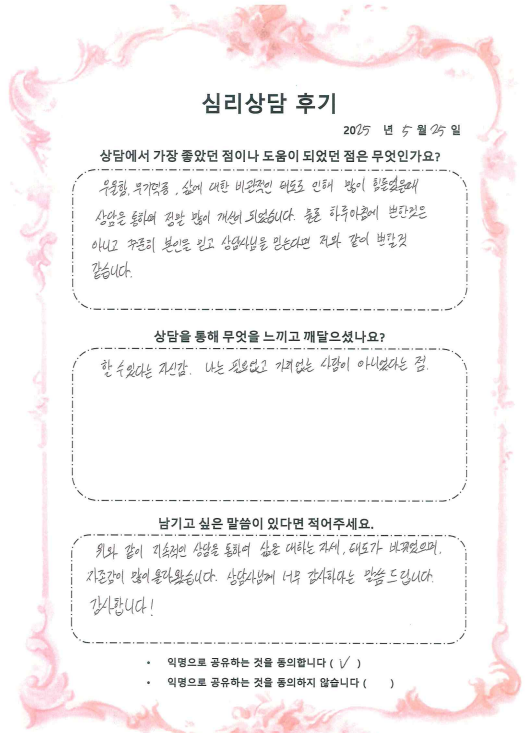 심리상담 후기
2025 년 5 월 25 일
상담에서 가장 좋았던 점이나 도움이 되었던 점은 무엇인가요?
우울함, 무기력증, 삶에 대한 비관적인 태도로 인해 많이 힘들었는데
상담을 통하여 정말 많이 개선이 되었습니다. 물론 하루아침에 변한것은
아니고 꾸준히 본인을 믿고 상담사님을 믿는다면 저와 같이 변할것
같습니다.
상담을 통해 무엇을 느끼고 깨달으셨나요?
할 수 있다는 자신감. 나는 필요없고 가치없는 사람이 아니었다는 점.
남기고 싶은 말씀이 있다면 적어주세요.
위와 같이 지속적인 상담을 통하여 삶을 대하는 자세, 태도가 바뀌었으며,
자존감이 많이 올라왔습니다. 상담사님께 너무 감사하다는 말씀 드립니다.
감사합니다!
• 익명으로 공유하는 것을 동의합니다 ( √ )
• 익명으로 공유하는 것을 동의하지 않습니다 ( )